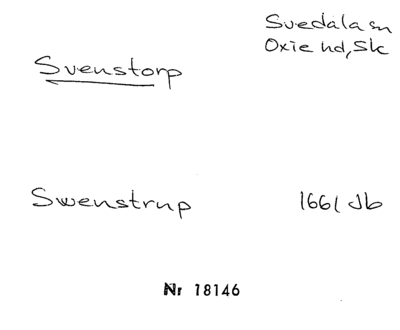 Svedala sn
Oxie hd, Sk
Svenstorp
Swenstrup 1661 Jb
Nr 18146